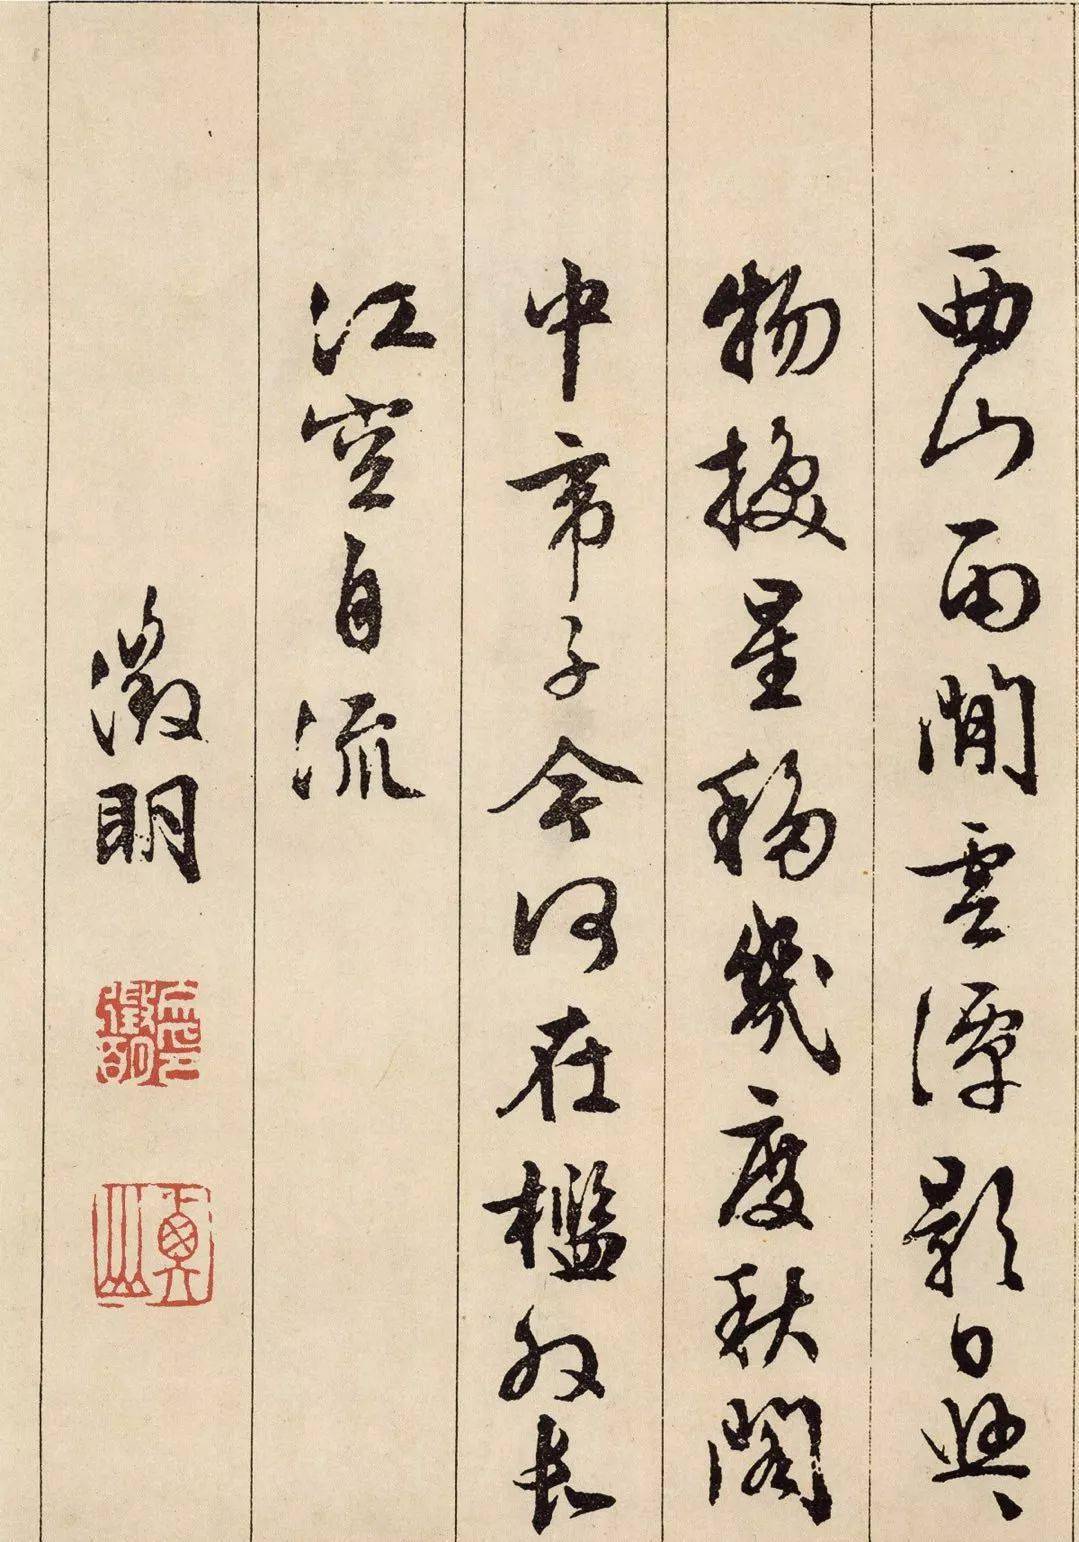 西山雨閒雲潭影日悠々
物換星移幾度秋閣
中帝子今何在檻外長
江空自流
徵明